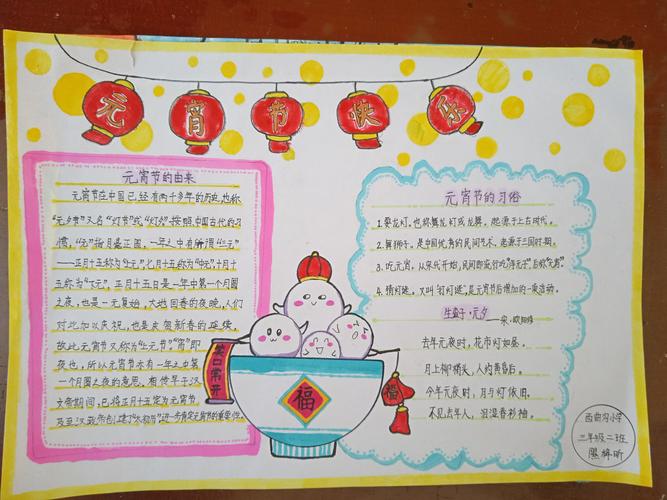 元宵节快乐
元宵节的由来
元宵节在中国已经有两千多年的历史,也称
“元夕节”又名“灯节”或“灯火”按照中国古代的习
惯,“元”指月亮正圆,一年之中有所谓“三元”
——正月十五称为“上元”,七月十五称为“中元”,十月十
五称为“下元”。正月十五日是一年中第一个月圆
之夜,也是一元复始,大地回春的夜晚,人们
对此加以庆祝,也是庆贺新春的延续,
故此元宵节又称为“上元节”“宵”即
夜也,所以元宵节亦有一年之中第
一个月圆之夜的意思。相传早于汉
文帝期间,已将正月十五定为元宵节,
元宵节的习俗
1.耍龙灯,也称舞龙灯或龙舞。起源于上古时代。
2.舞狮子,是中国优秀的民间艺术,起源于三国时期。
3.吃元宵,从宋代开始,民间即流行吃“浮元子”后称“元宵”。
4.猜灯谜,又叫“打灯谜”,是元宵节后增加的一项活动。
生查子·元夕
——宋·欧阳修
去年元夜时,花市灯如昼。
月上柳梢头,人约黄昏后。
今年元夜时,月与灯依旧。
不见去年人,泪湿春衫袖。
笑口常开
福
福
小学
三年级二班